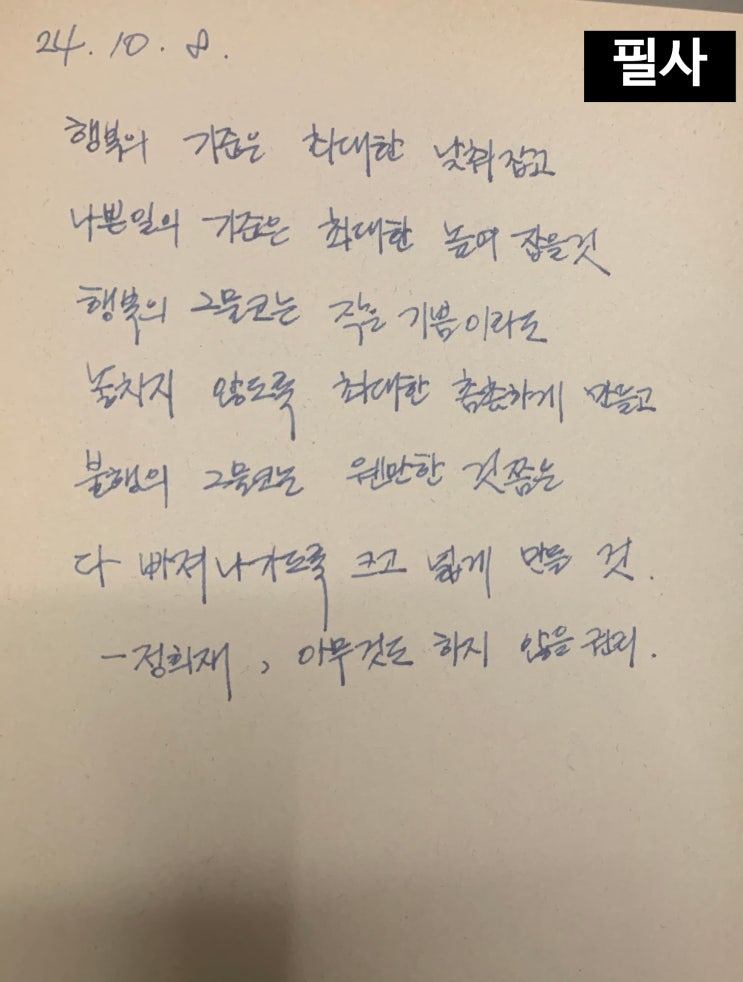 24. 10. 8.
필사
행복의 기준은 최대한 낮춰 잡고
나쁜일의 기준은 최대한 높여 잡을것
행복의 그물코는 작은 기쁨이라도
놓치지 않도록 최대한 촘촘하게 만들고
불행의 그물코는 웬만한 것쯤는
다 빠져나가도록 크고 넓게 만들 것.
- 정희재, 아무것도 하지 않을 권리.